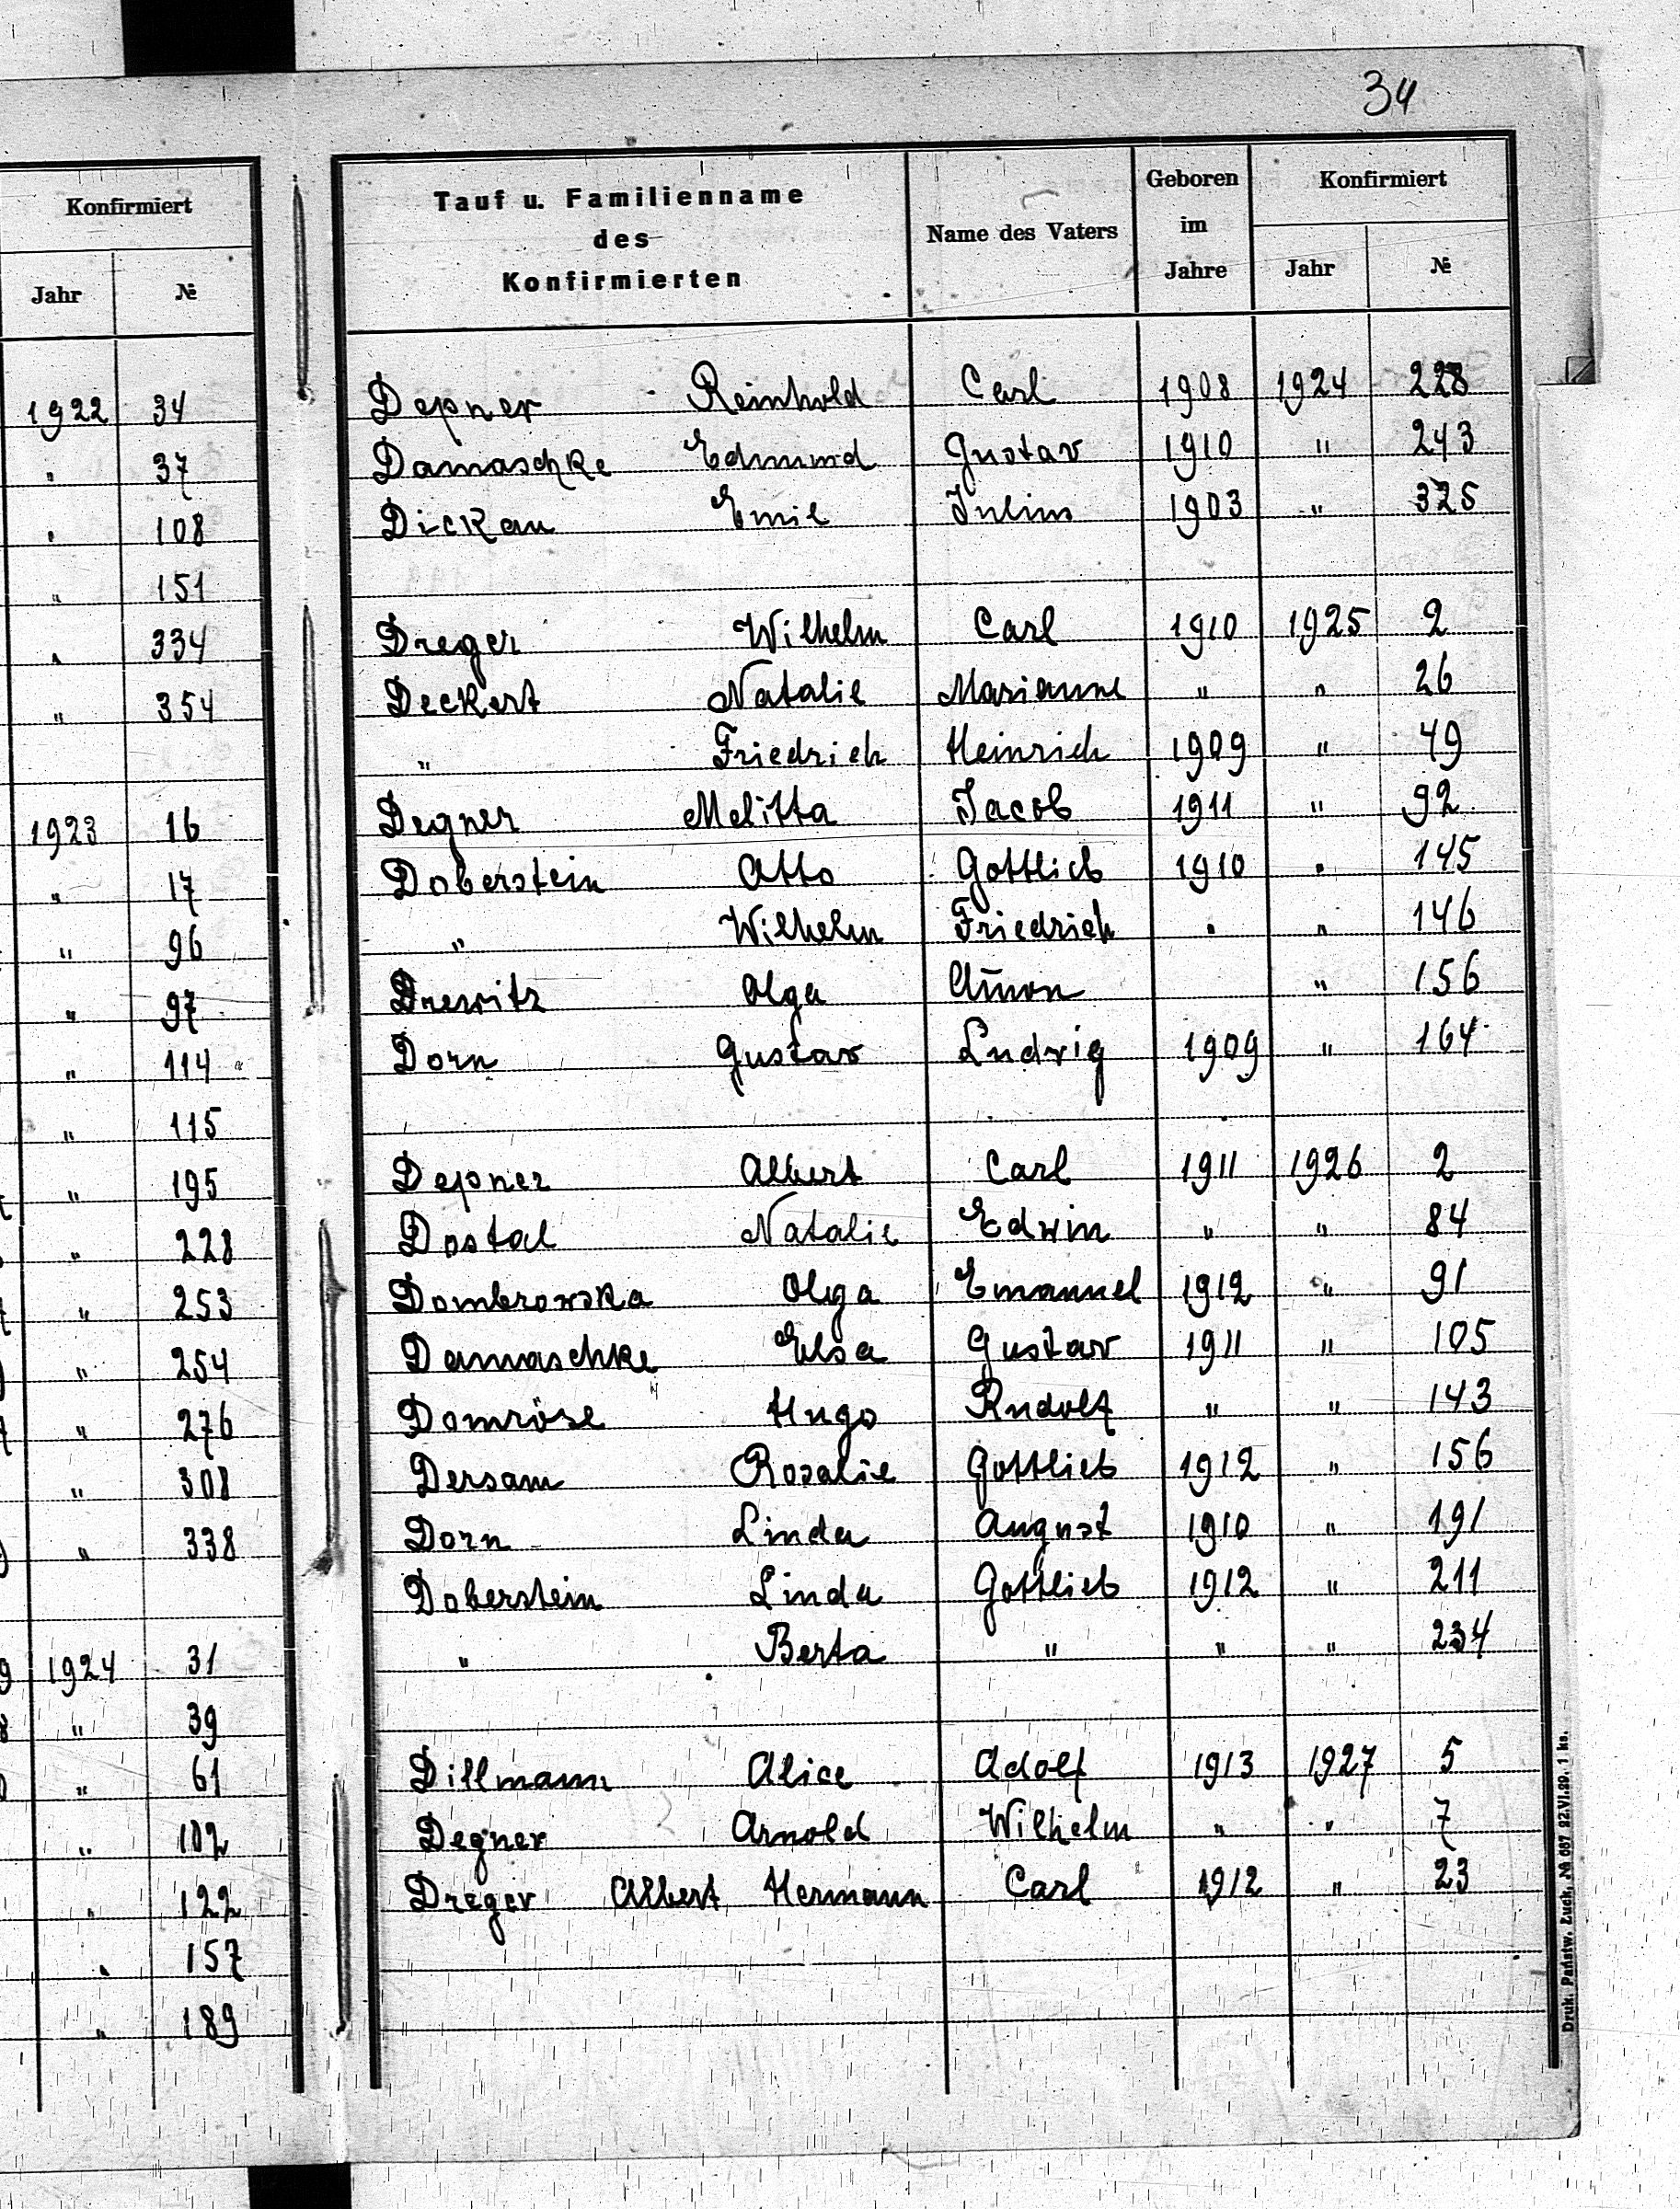 34
Konfirmiert
Jahr №
1922 34
" 37
" 108
" 151
" 334
" 354
1923 16
" 17
" 96
" 97
" 114
" 115
" 195
" 228
" 253
" 254
" 276
" 308
" 338
1924 31
" 39
" 61
" 102
" 122
" 157
" 189
Tauf u. Familienname des Konfirmierten Name des Vaters Geboren im Jahre Konfirmiert
Jahr №
Depner Reinhold Carl 1908 1924 228
Damaschke Edmund Gustav 1910 " 243
Dickau Emil Julius 1903 " 325
Dreger Wilhelm Carl 1910 1925 2
Deckert Natalie Marianne " " 26
" Friedrich Heinrich 1909 " 49
Degner Melitta Jacob 1911 " 92
Doberstein Otto Gottlieb 1910 " 145
" Wilhelm Friedrich " " 146
Drewitz Olga " 156
Dorn Gustav Ludwig 1909 " 164
Depner Albert Carl 1911 1926 2
Dostal Natalie Edwin " " 84
Dombrowska Olga Emanuel 1912 " 91
Damaschke Elsa Gustav 1911 " 105
Domröse Hugo Rudolf " " 143
Dersam Rosalie Gottlieb 1912 " 156
Dorn Linda August 1910 " 191
Doberstein Linda Gottlieb 1912 " 211
" Berta " " " 234
Dillmann Alice Adolf 1913 1927 5
Degner Arnold Wilhelm " " 7
Dreger Albert Hermann Carl 1912 " 23
Druk. Państw. Łuck, № 687 22.VI.29. 1 ks.